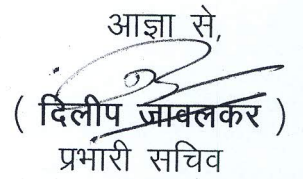 आज्ञा से,
( दिलीप जावलकर )
प्रभारी सचिव